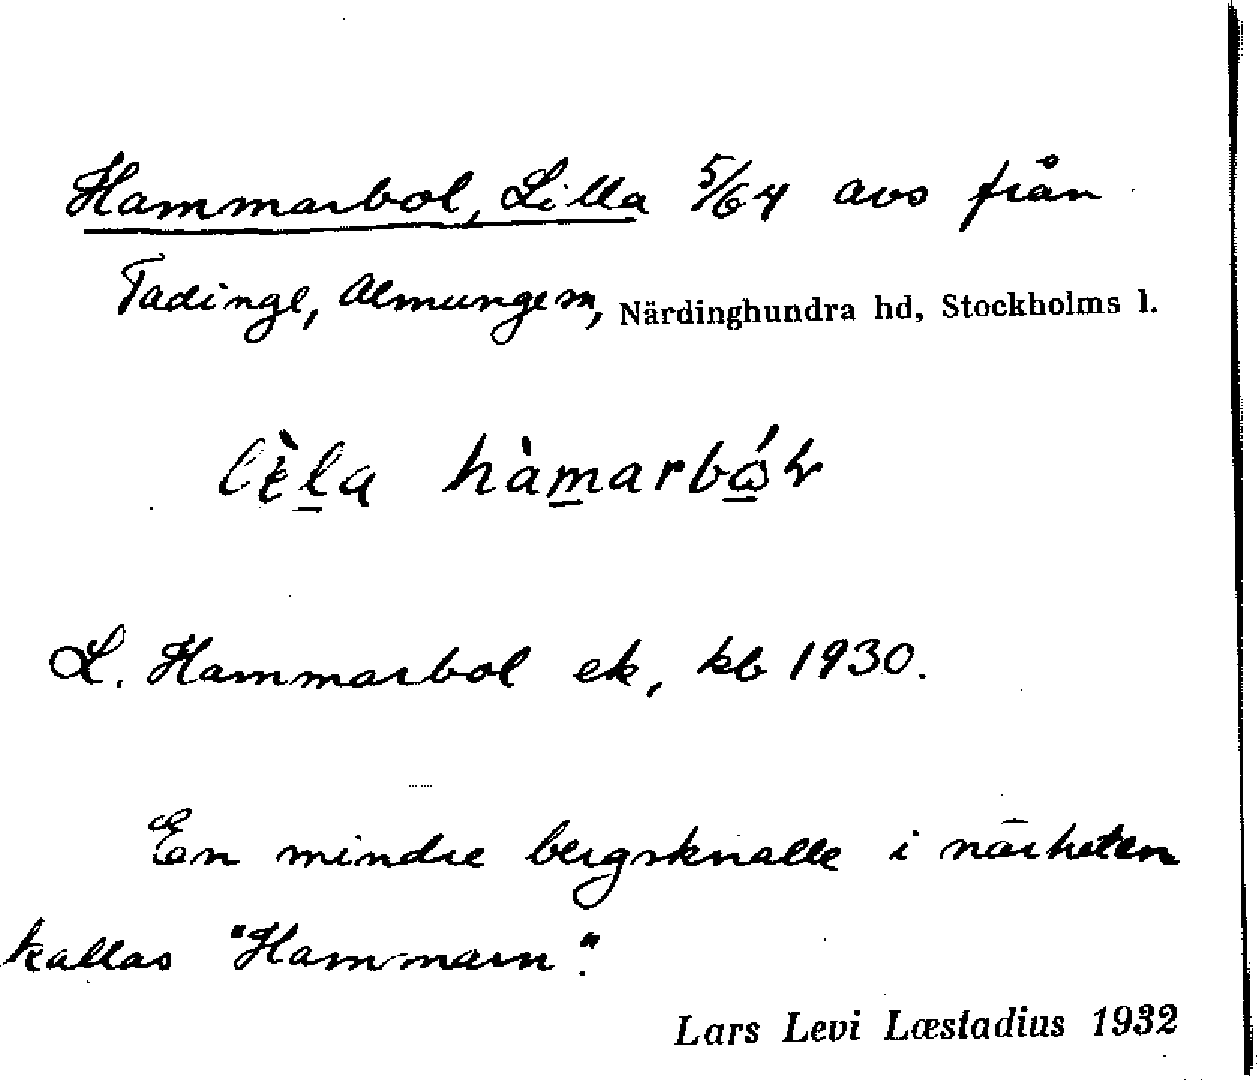 Hammarbol, Lilla 5/64 avs från
Tadinge, Almungem, Närdinghundra hd, Stockholms l.
hàmarbó̱
L. Hammarbol ek, kb 1930.
En mindre bergsknalle i närheten
kallas "Hammarn".
Lars Levi Læstadius 1932